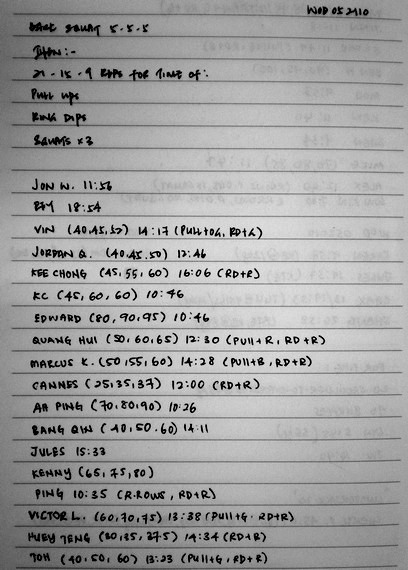 WOD 052910
BACK SQUAT 5-5-5
THEN:-
21-15-9 REPS FOR TIME OF:
PULL UPS
RING DIPS
SQUATS x3
JON W. 11:56
18:54
VIN (40,45,52) 14:17 (PULL+G, RD+G)
JORDAN G. (40,45,50) 12:46
KEE CHONG (45,55,60) 16:06 (RD+R)
KC (45,60,60) 10:46
EDWARD (80,90,95) 10:46
QUANG HUI (50,60,65) 12:30 (PULL+R, RD+R)
MARCUS K. (50,55,60) 14:28 (PULL+B, RD+R)
CANNES (25,35,37) 12:00 (RD+R)
AH PING (70,80,90) 10:26
BANG QIN (40,50,60) 14:11
JULES 15:33
KENNY (65,75,80)
PING 10:35 (R.ROWS, RD+R)
VICTOR L. (60,70,75) 13:38 (PULL+G, RD+R)
HUEY TENG (30,35,37.5) 14:34 (RD+R)
TOH (40,50,60) 13:23 (PULL+G, RD+R)